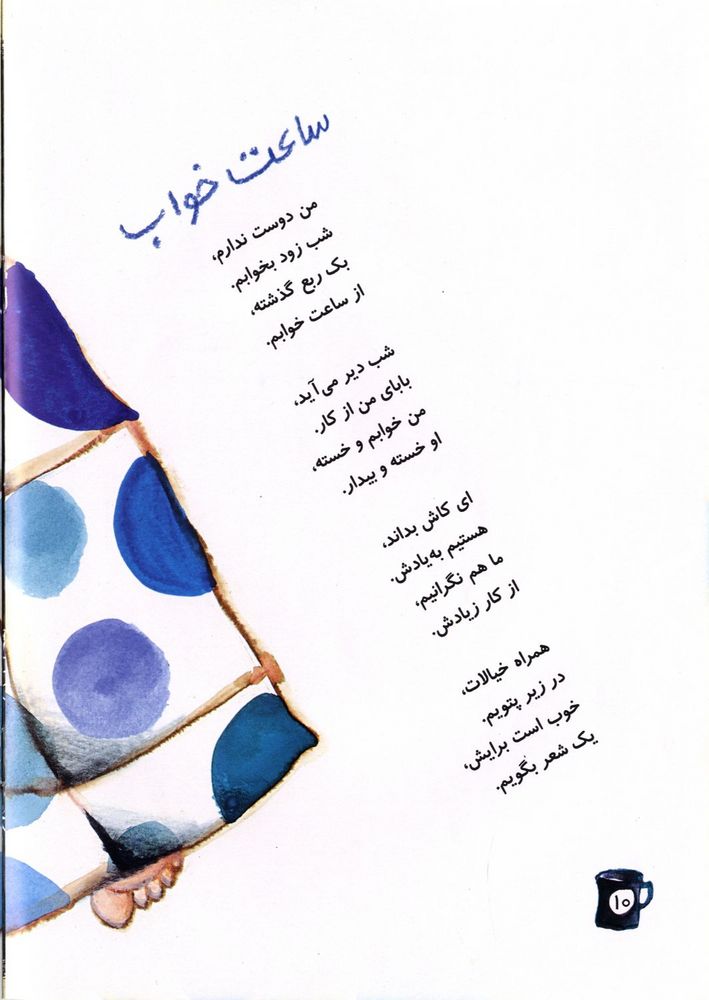 ساعت خواب
من دوست ندارم،
شب زود بخوابم.
یک ربع گذشته،
از ساعت خوابم.
شب دیر می‌آید،
بابای من از کار.
من خوابم و خسته،
او خسته و بیدار.
ای کاش بداند،
هستیم به‌یادش.
ما هم نگرانیم،
از کار زیادش.
همراه خیالات،
در زیر پتویم.
خوب است برایش،
یک شعر بگویم.
۱۰